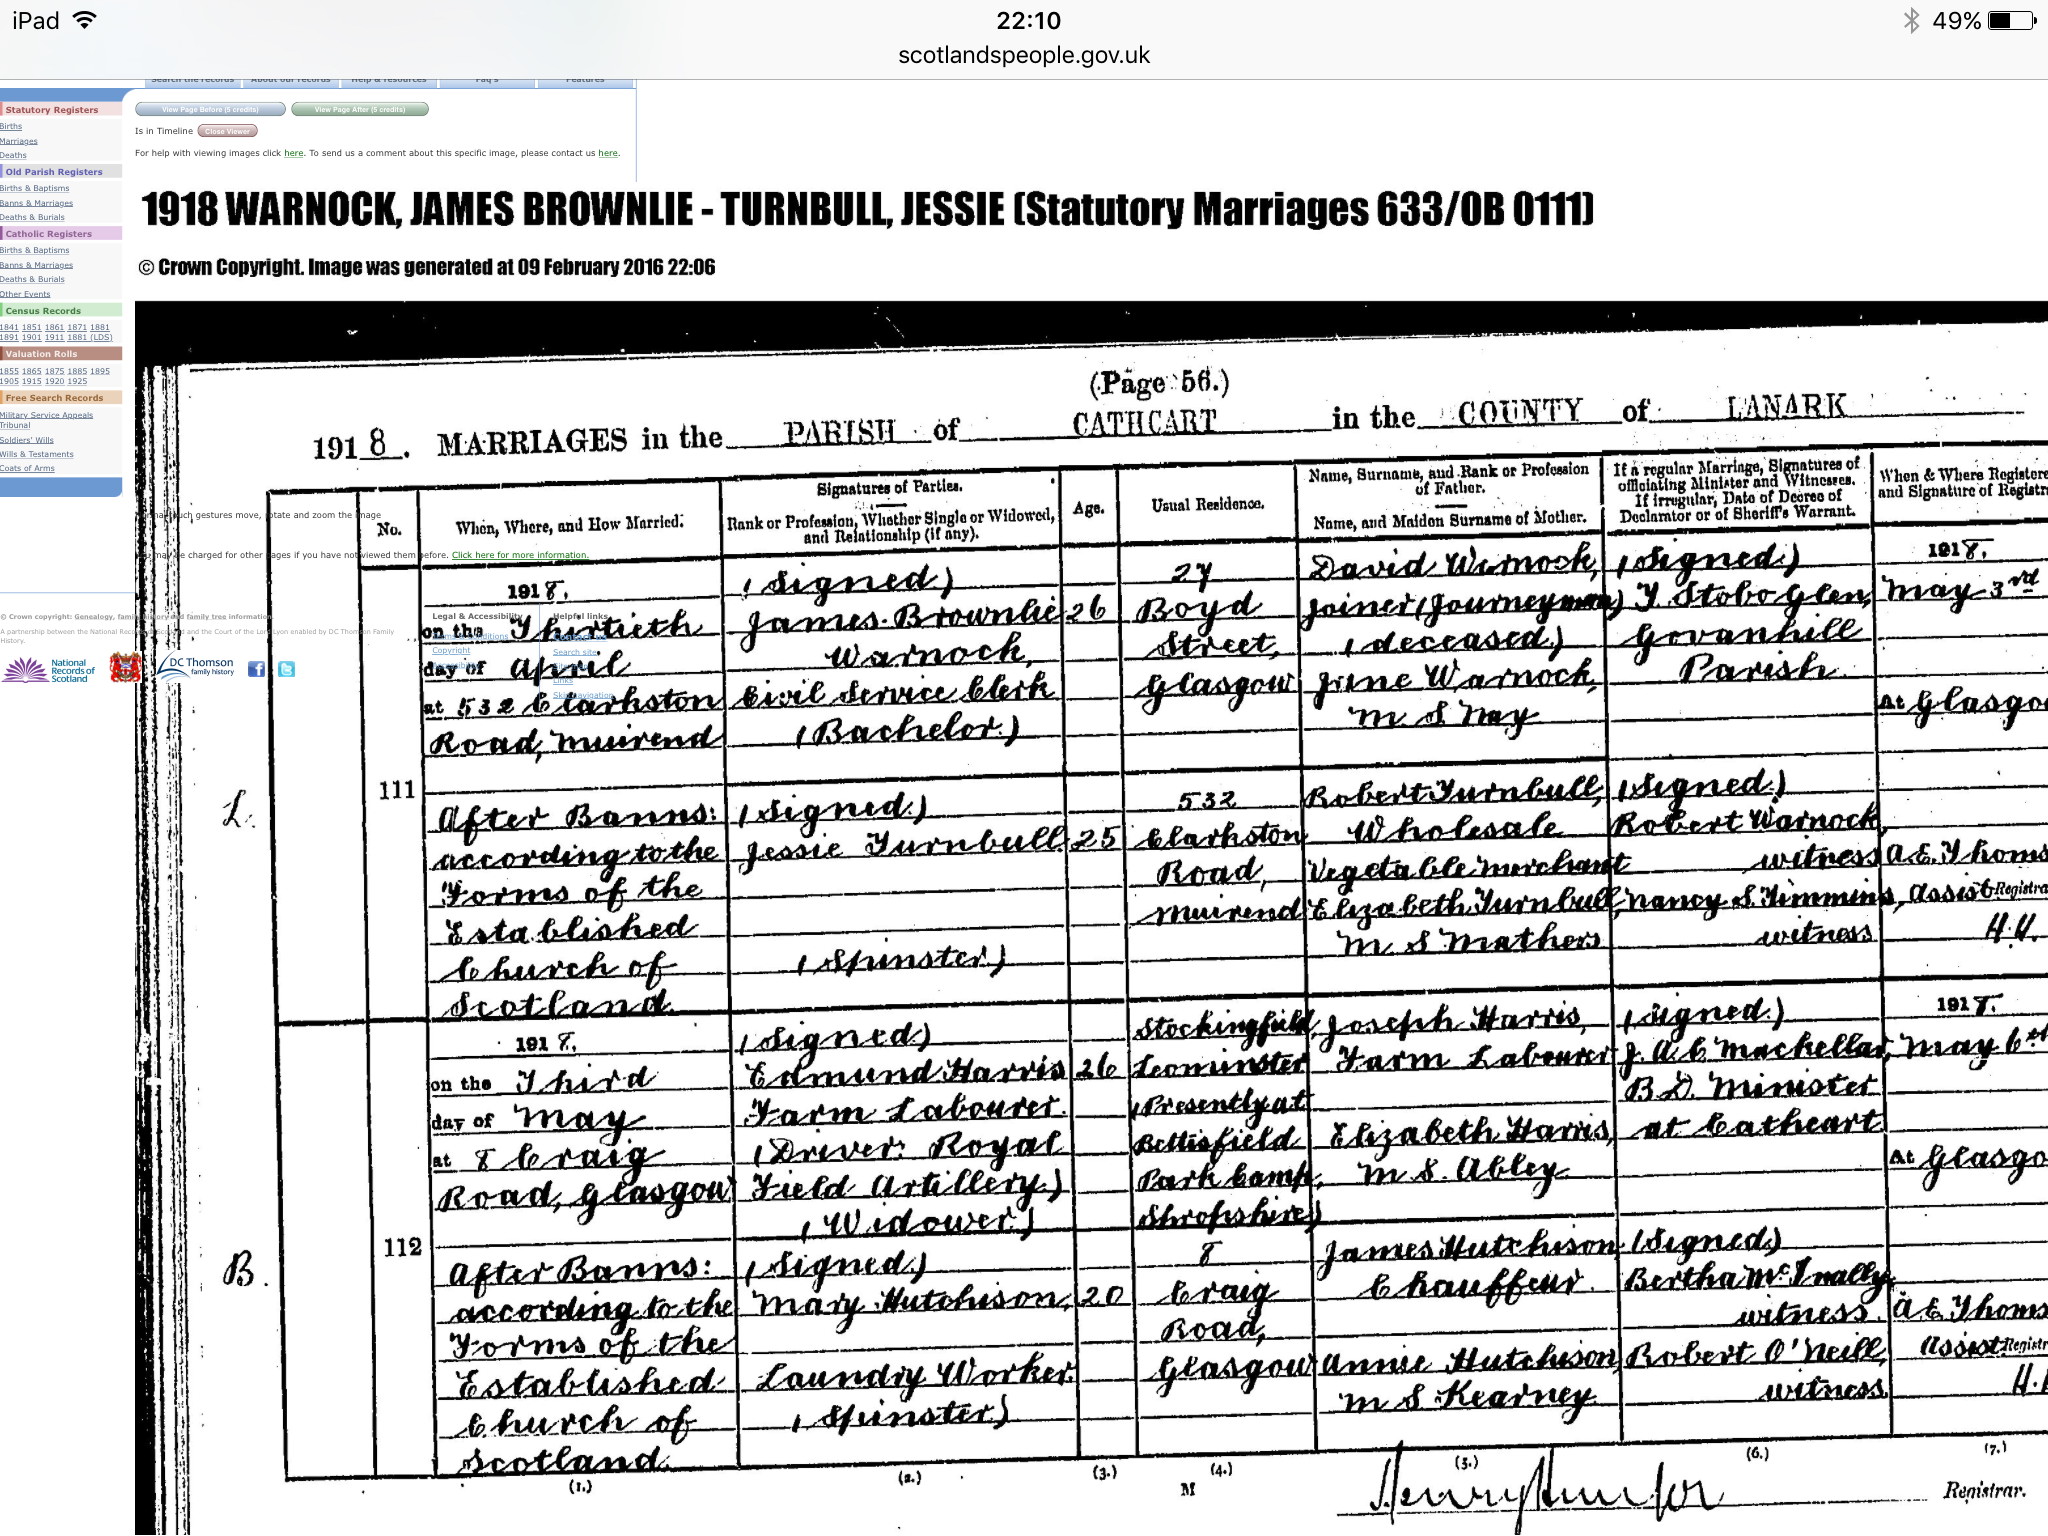 iPad 22:10 49%
scotlandspeople.gov.uk
Search the records About our records Help & resources Faq's Features
Statutory Registers
Births
Marriages
Deaths
Old Parish Registers
Births & Baptisms
Banns & Marriages
Deaths & Burials
Catholic Registers
Births & Baptisms
Banns & Marriages
Deaths & Burials
Other Events
Census Records
1841 1851 1861 1871 1881
1891 1901 1911 1881 (LDS)
Valuation Rolls
1855 1865 1875 1885 1895
1905 1915 1920 1925
Free Search Records
Military Service Appeals
Tribunal
Soldiers' Wills
Wills & Testaments
Coats of Arms
View Page Before (5 credits) View Page After (5 credits)
Is in Timeline Close Viewer
For help with viewing images click here. To send us a comment about this specific image, please contact us here.
1918 WARNOCK, JAMES BROWNLIE - TURNBULL, JESSIE (Statutory Marriages 633/0B 0111)
© Crown Copyright. Image was generated at 09 February 2016 22:06
gestures move, rotate and zoom the image
may be charged for other pages if you have not viewed them before. Click here for more information.
© Crown copyright: Genealogy, family history and family tree information
A partnership between the National Records of Scotland and the Court of the Lord Lyon enabled by DC Thomson Family
History.
National
Records of
Scotland
DC Thomson
family history
Legal & Accessibility
Copyright
Helpful links
Search site
Links
Skip navigation
(Page 56.)
1918. MARRIAGES in the PARISH of CATHCART in the COUNTY of LANARK
No.
When, Where, and How Married.
Signatures of Parties.
Rank or Profession, Whether Single or Widowed,
and Relationship (if any).
Age.
Usual Residence.
Name, Surname, and Rank or Profession
of Father.
Name, and Maiden Surname of Mother.
If a regular Marriage, Signatures of
officiating Minister and Witnesses.
If irregular, Date of Decree of
Declarator or of Sheriff's Warrant.
When & Where Registere
and Signature of Registr
L.
111
1918.
on the Thirtieth
day of April
at 532 Clarkston
Road, Muirend
After Banns:
according to the
Forms of the
Established
Church of
Scotland.
(Signed)
James Brownlie
Warnock,
Civil Service Clerk
(Bachelor.)
(Signed.)
Jessie Turnbull
(Spinster)
26
25
27
Boyd
Street,
Glasgow
532
Clarkston
Road,
Muirend
David Warnock,
Joiner (Journeyman)
(deceased)
Jane Warnock,
M.S. Hay
Robert Turnbull,
Wholesale
Vegetable Merchant
Elizabeth Turnbull,
M.S. Mathers
(Signed.)
T. Stobo Glen,
Govanhill
Parish.
(Signed.)
Robert Warnock,
witness
Nancy S. Timmins,
witness
1918.
May 3rd
At Glasgo
A.E. Thoms
Assist Registra
H.H.
B.
112
1918.
on the Third
day of May
at 8 Craig
Road, Glasgow
After Banns:
according to the
Forms of the
Established
Church of
Scotland.
(Signed)
Edmund Harris
Farm Labourer.
(Driver: Royal
Field Artillery.)
(Widower.)
(Signed.)
Mary Hutchison,
Laundry Worker.
(Spinster)
26
20
Stockingfield,
Leominster
(Presently at
Bettisfield
Park Camp,
Shropshire)
8
Craig
Road,
Glasgow
Joseph Harris,
Farm Labourer
Elizabeth Harris,
M.S. Abley
James Hutchison
Chauffeur.
Annie Hutchison
M.S Kearney
(Signed.)
J.A.C. Mackellar,
B.D. Minister
at Cathcart
(Signed)
Bertha McInally,
witness.
Robert O'Neill,
witness
1918.
May 6th
At Glasgo
A.E. Thoms
Assist. Registr
(1.) (2.) (3.) (4.) (5.) (6.) (7.)
M
Registrar.